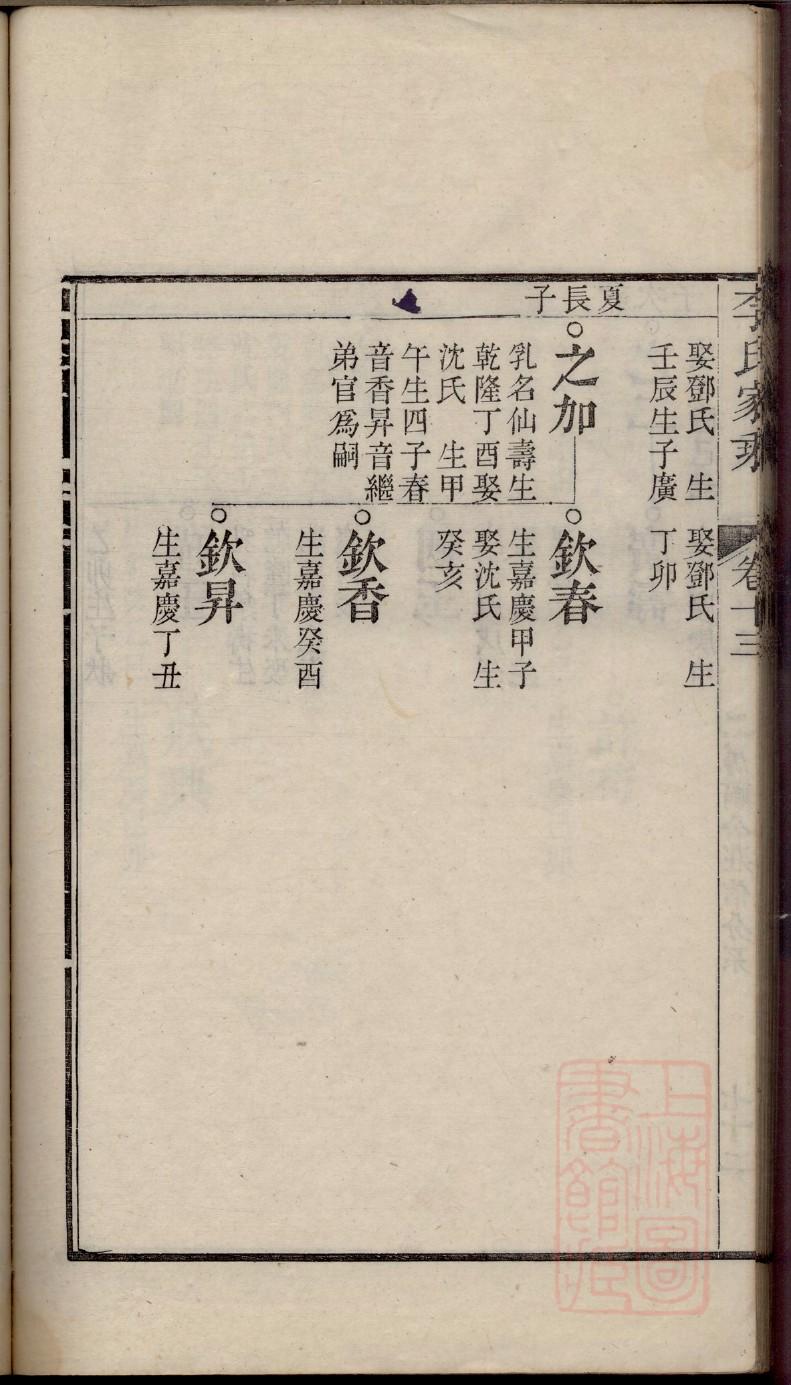 李氏家乘
卷十三
娶鄧氏　生
壬辰生子廣
娶鄧氏　生
丁卯
夏長子
之加
乳名仙壽生
乾隆丁酉娶
沈氏　生甲
午生四子春
音香昇音繼
弟官爲嗣
欽春
生嘉慶甲子
娶沈氏　生
癸亥
欽香
生嘉慶癸酉
欽昇
生嘉慶丁丑
上海圖
書館藏